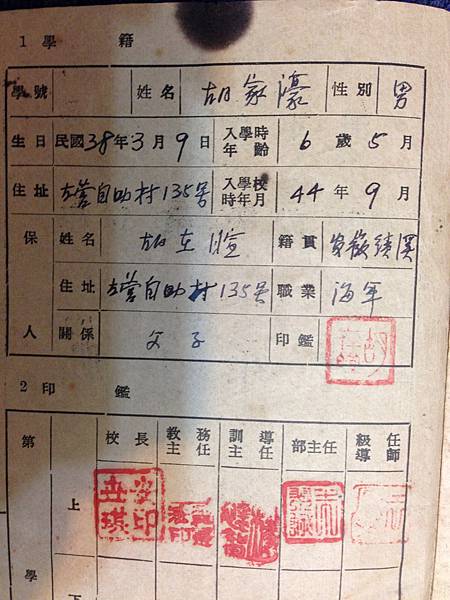 1 學 籍
學號 姓名 胡家濠 性別 男
生日 民國38年3月9日 入學時年齡 6歲5月
住址 左營自助村135号 入學校時年月 44年9月
保 姓名 胡 籍貫 安徽績溪
住址 左營自助村135号 職業 海軍
人 關係 父子 印鑑
2 印 鑑
第 校長 教務主任 訓導主任 部主任 級任導師
上
學 下